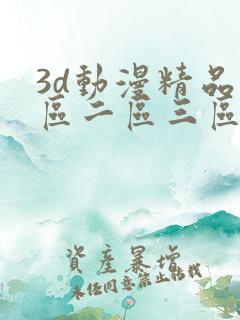 3d動漫精品
區二區三區
資產暴增
未经同意禁止转载